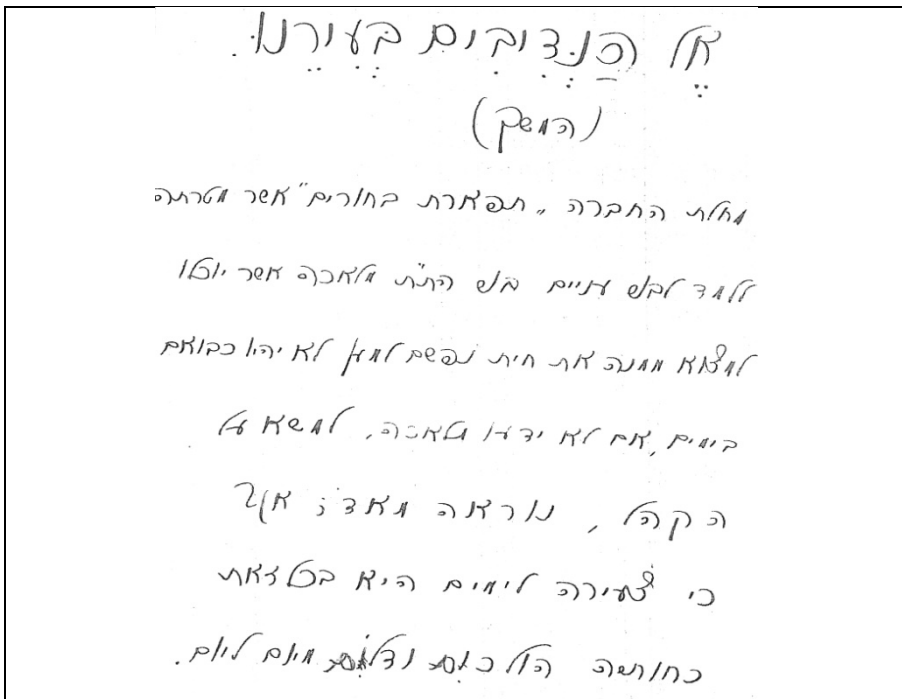 אֶל הַנְּדִיבִים בְּעִירֵנוּ.
(המשך)
מחלת החברה „תפארת בחורים" אשר מטרתה
ללמד לבני עניים בני הת"ת מלאכה אשר יוכלו
למצוא ממנה את חית נפשם למען לא יהיו כבואם
בימים, אם לא ידעו מלאכה, למשא על
הקהל, נוראה מאד; אף
כי צעירה לימים היא בכל זאת
כחותיה הולכים ודלים מיום ליום.